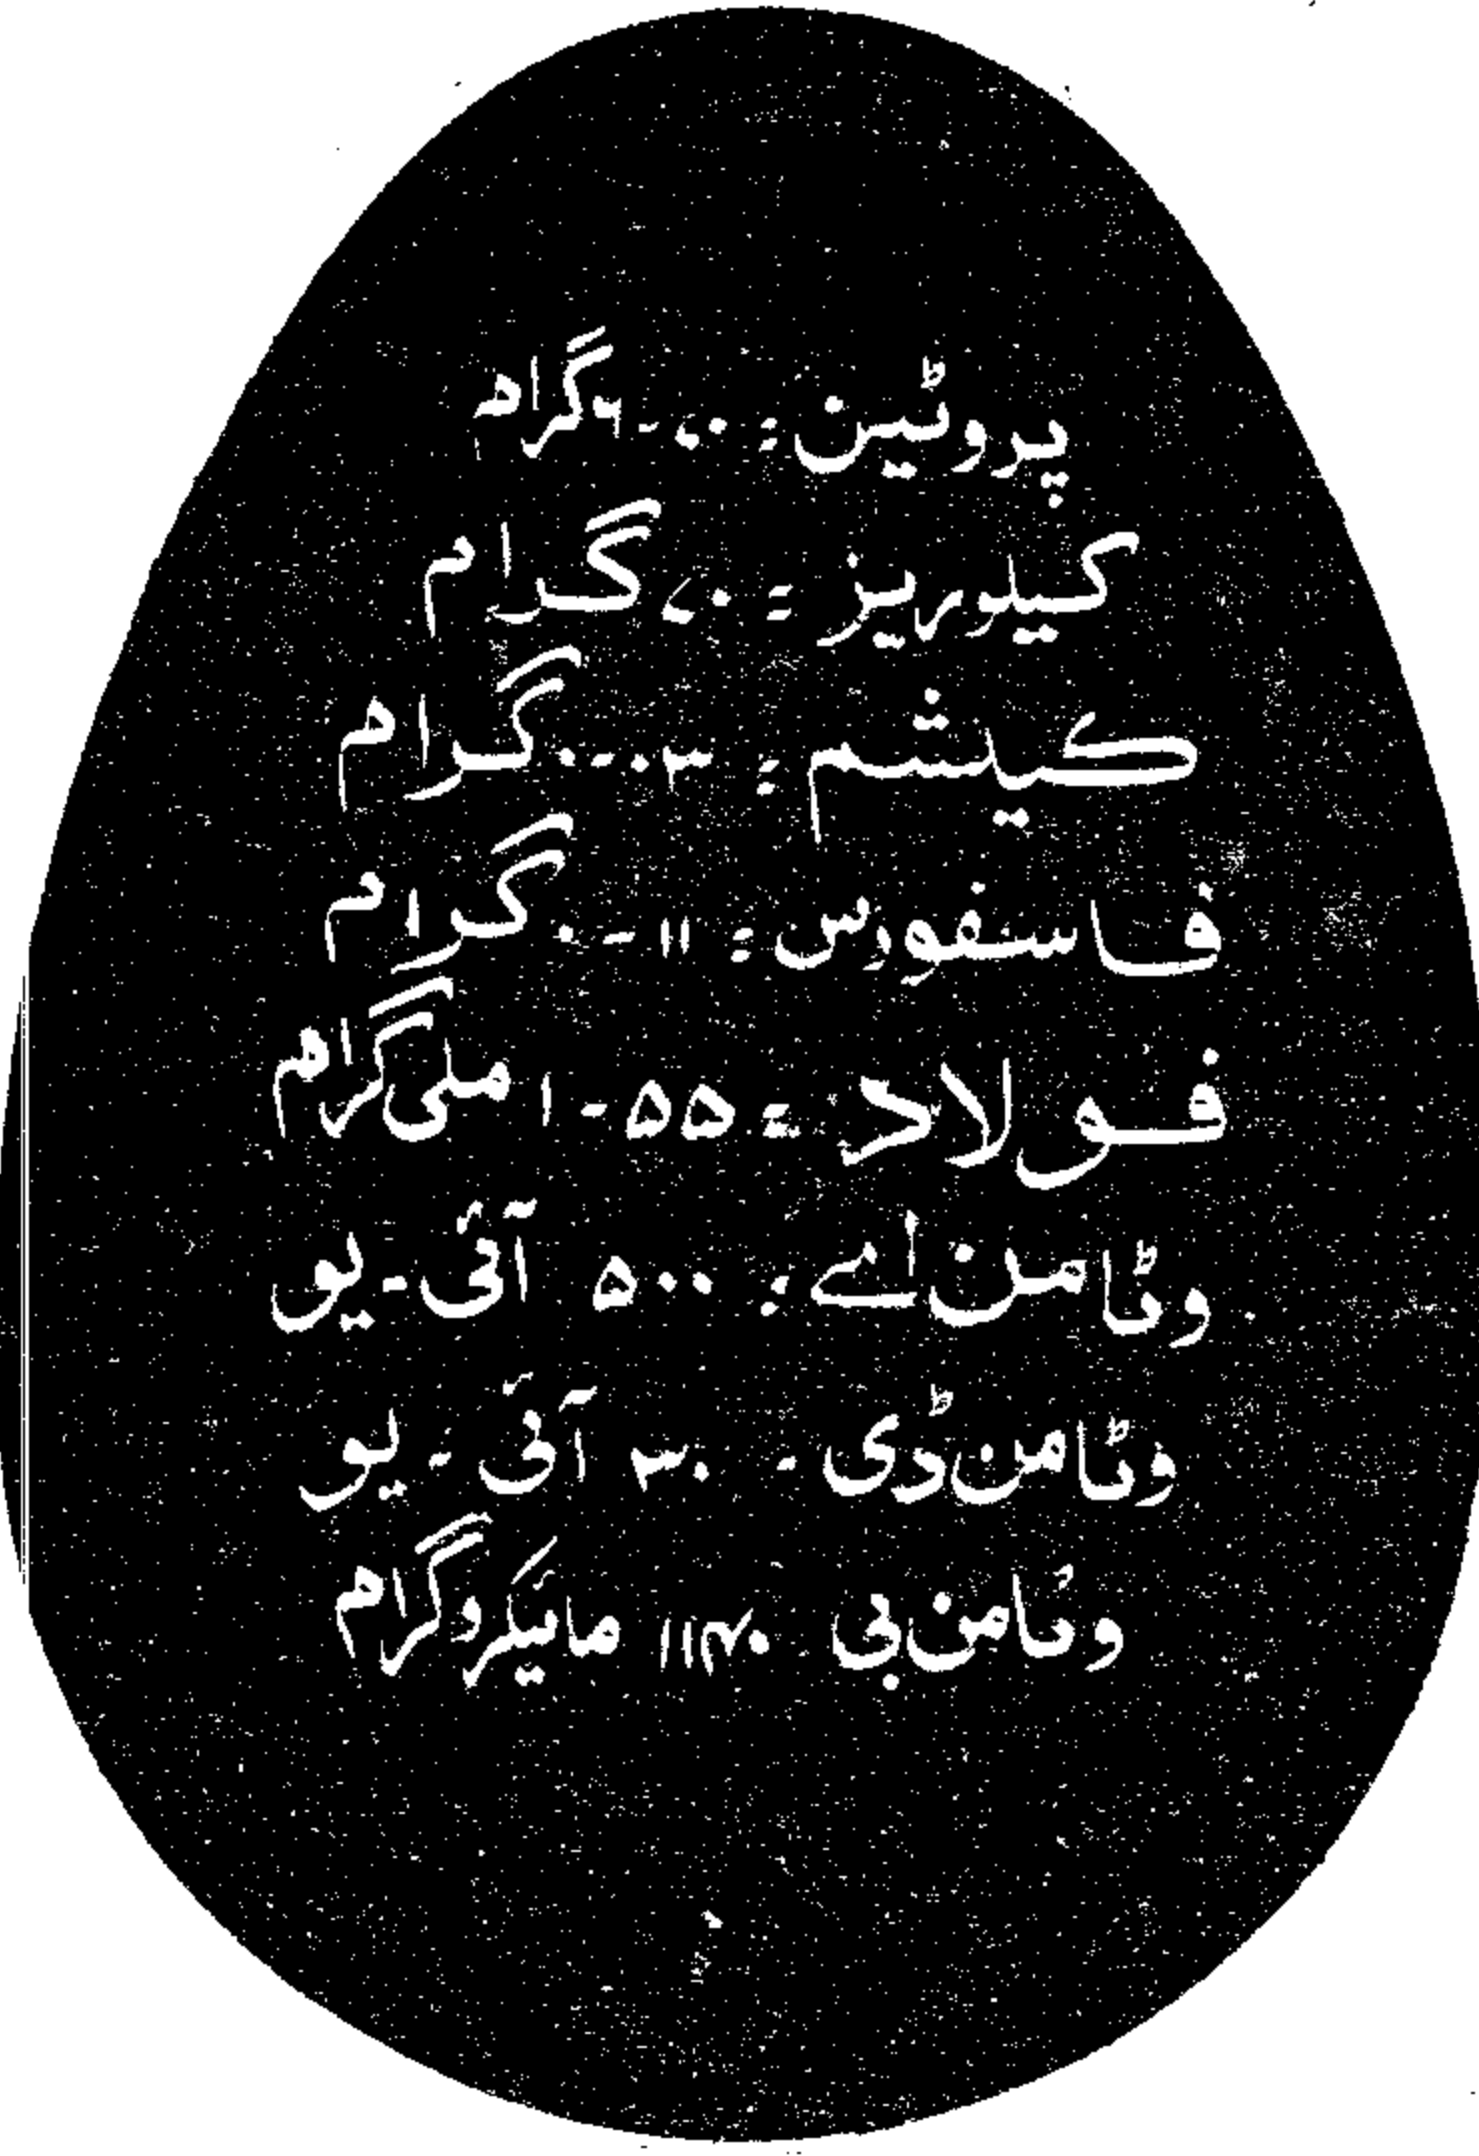 پروٹین : ۷۰ - ۶ گرام
کیلوریز = ۷۰ گرام
کیلشم : ۰۳-۰۰ گرام
فاسفورس : ۱۱-۰ گرام
فولاد = ۵۵-۱ ملی گرام
وٹامن اے : ۵۰۰ آئی-یو
وٹامن ڈی - ۳۰ آئی-یو
وٹامن بی ۱۱۴۰ مائیکروگرام